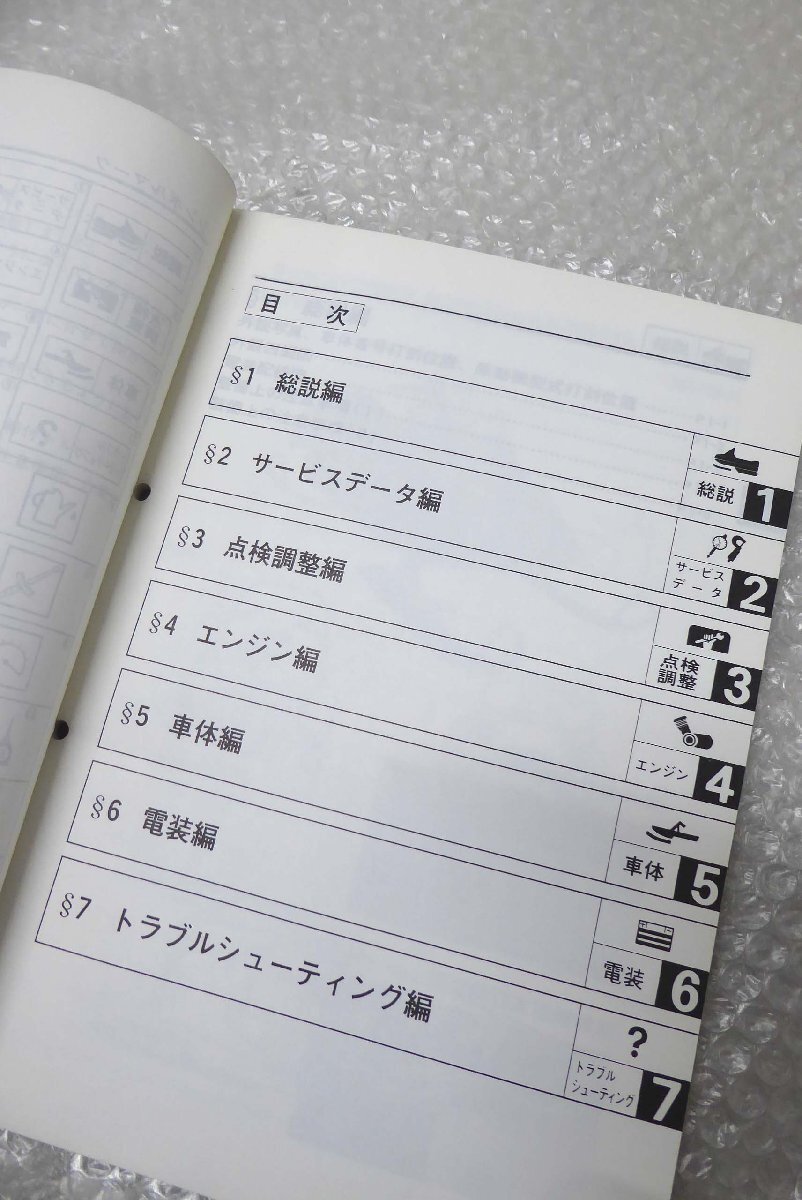 目 次
§1 総説編
総説 1
§2 サービスデータ編
サービス
データ 2
§3 点検調整編
点検
調整 3
§4 エンジン編
エンジン 4
§5 車体編
車体 5
§6 電装編
電装 6
§7 トラブルシューティング編
?
トラブル
シューティング 7